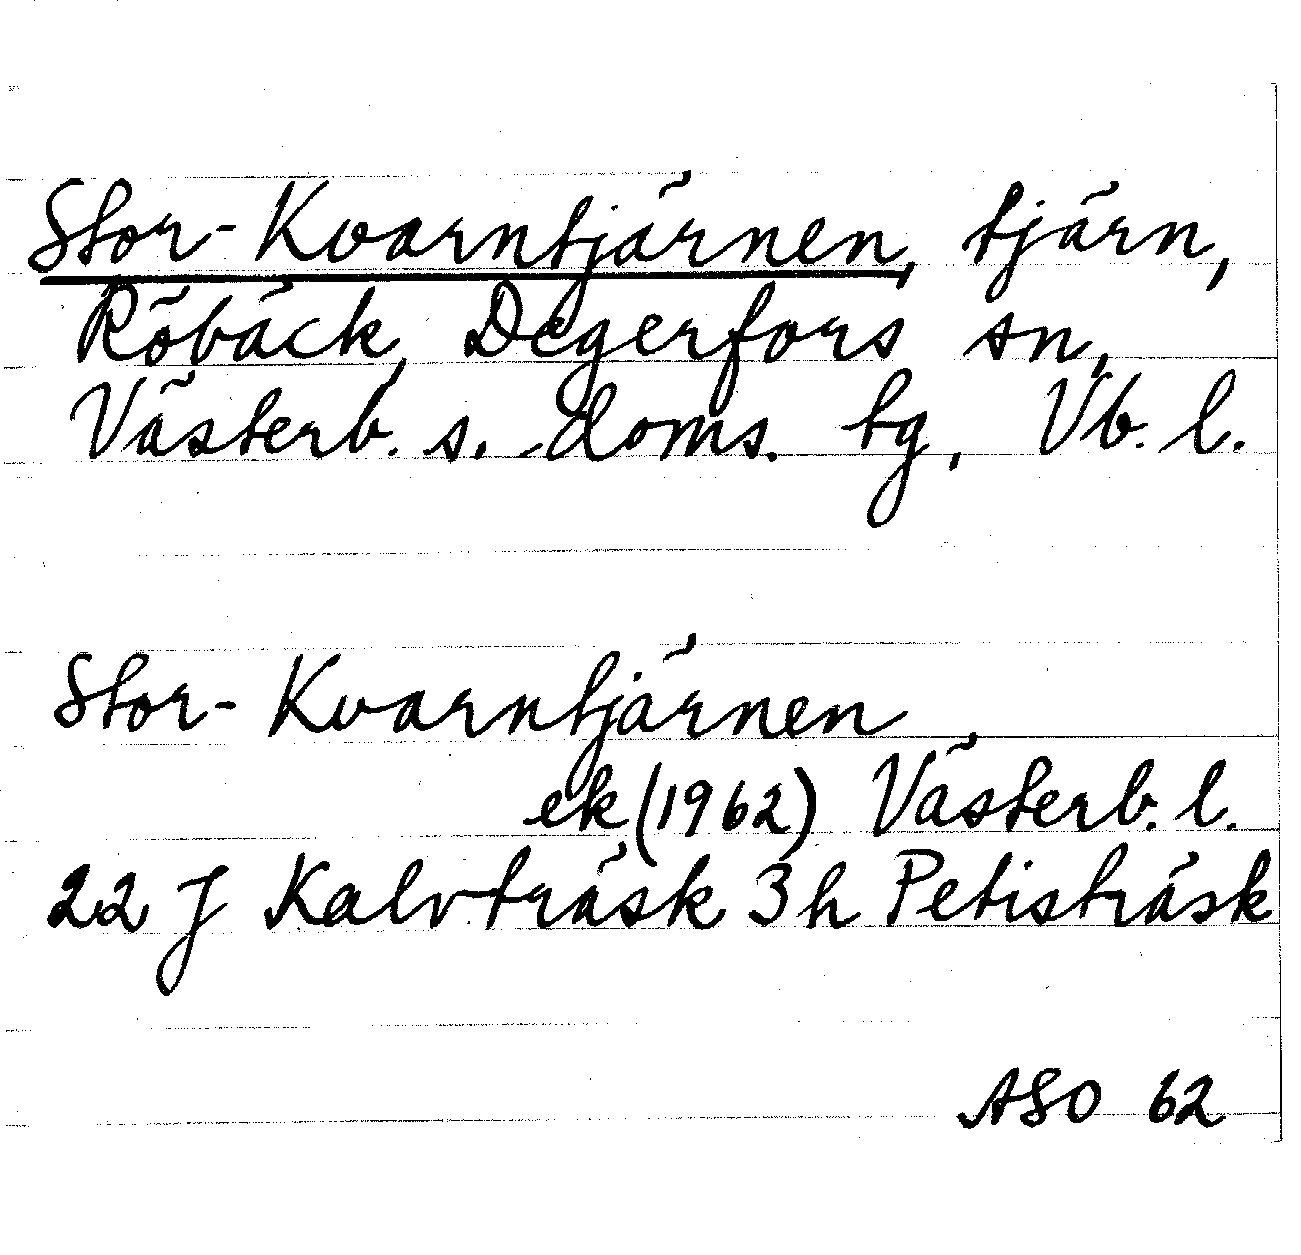 Stor-Kvarntjärnen, tjärn,
Röbäck, Degerfors sn,
Västerb. s. doms. tg, Vb. l.
Stor-Kvarntjärnen
ek (1962) Västerb. l.
22 J Kalvträsk 3 h Petisträsk
ASO 62